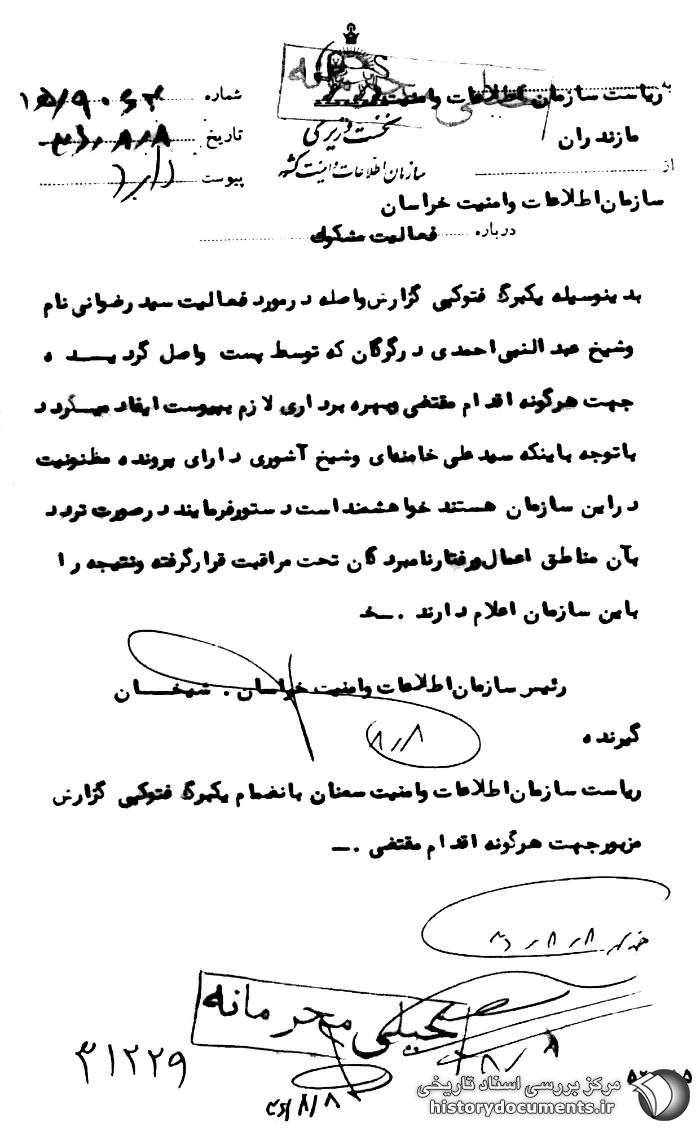 به ریاست سازمان اطلاعات وامنیت
مازندران
نخست وزیری
سازمان اطلاعات و امنیت کشور
شماره
تاریخ
پیوست دارد
از
سازمان اطلاعات وامنیت خراسان
درباره فعالیت مشکوک
بدینوسیله یکبرگ فتوکپی گزارش واصله درمورد فعالیت سید رضوانی نام
وشیخ عبدالنبی احمدی درگرگان که توسط پست واصل گردیده
جهت هرگونه اقدام مقتضی وبهره برداری لازم بپیوست ایفاد میگردد
باتوجه باینکه سید علی خامنه‌ای وشیخ آشوری دارای پرونده مظنونیت
دراین سازمان هستند خواهشمند است دستورفرمایند درصورت تردد
بآن مناطق اعمال ورفتار نامبردگان تحت مراقبت قرارگرفته ونتیجه را
باین سازمان اعلام دارند .ـخ
رئیس سازمان اطلاعات وامنیت خراسان . شیخان
۸/۸
گیرنده
ریاست سازمان اطلاعات وامنیت سمنان بانضمام یکبرگ فتوکپی گزارش
مزبور جهت هرگونه اقدام مقتضی .ـ
خیلی محرمانه
۳۱۲۲۹
۸/۸
مرکز بررسی اسناد تاریخی
historydocuments.ir